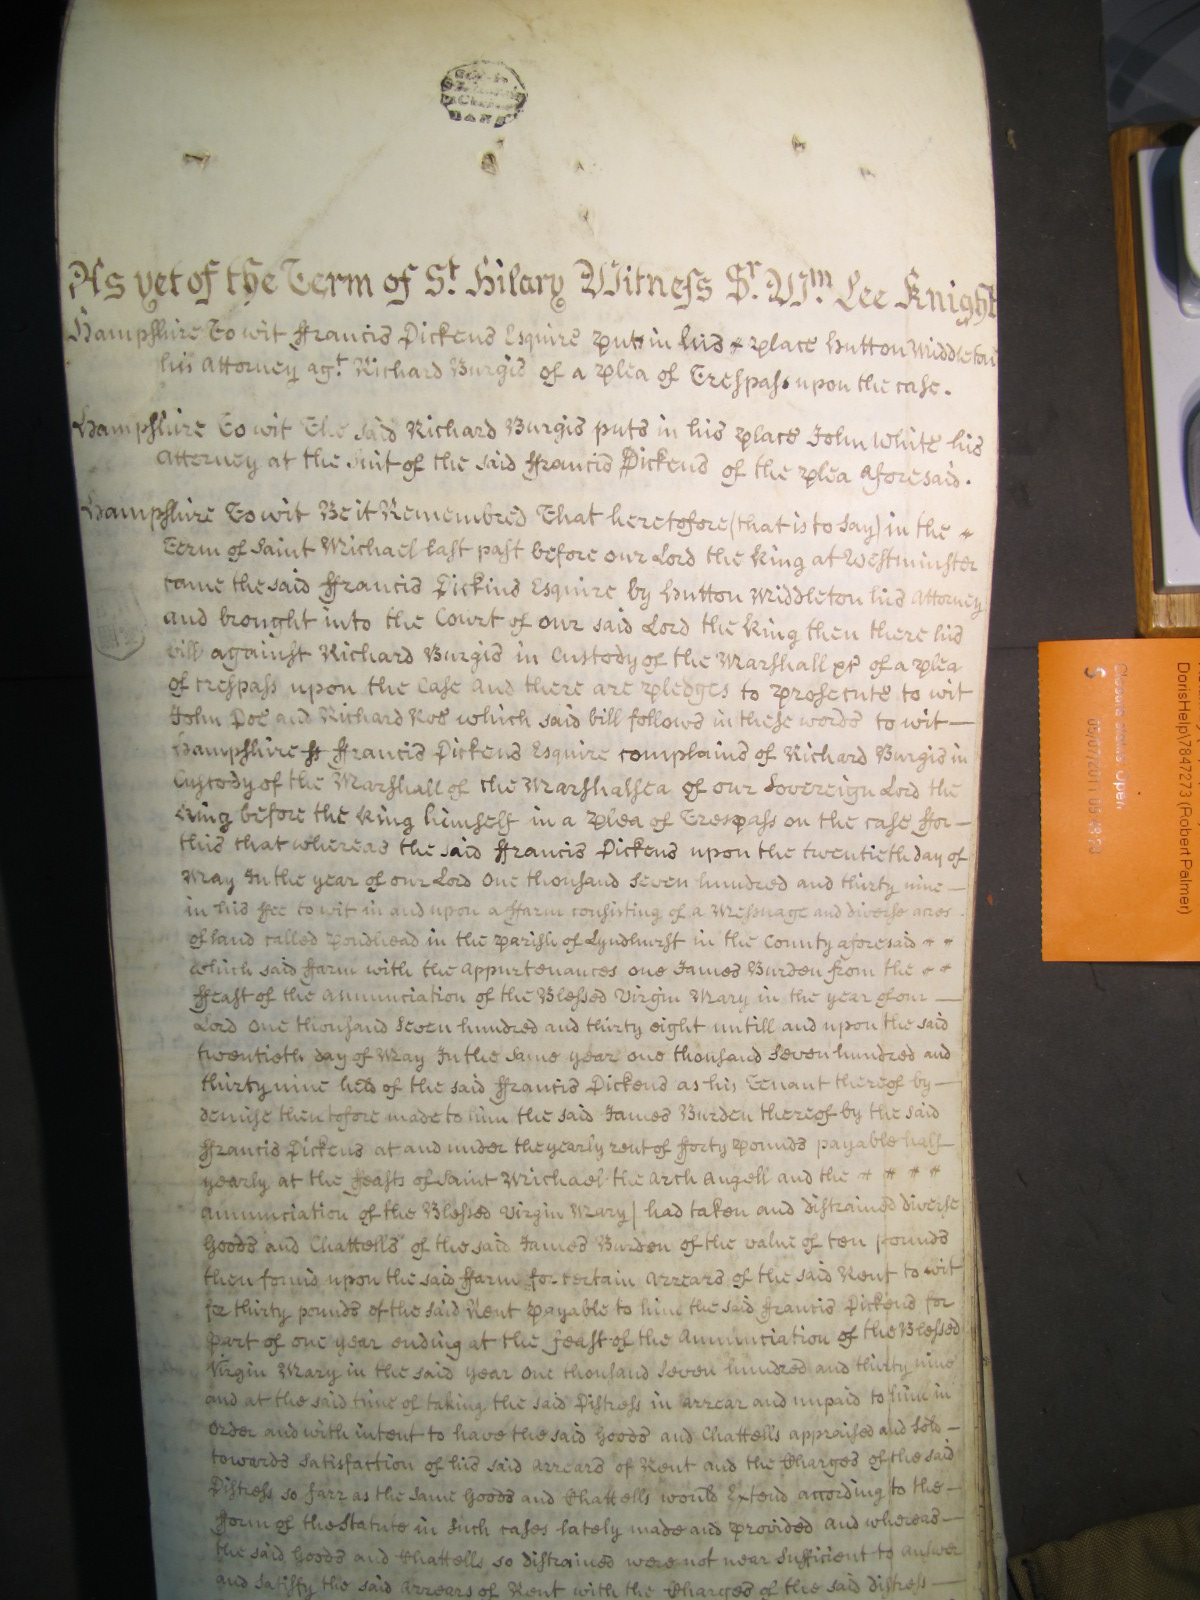 As yet of the Term of St. Hilary Witness Sr. Wm Lee Knight
Hampshire To wit Francis Dickens Esquire puts in his place Hutton Middleton
his Attorney agt. Richard Burgis of a plea of Trespass upon the case.
Hampshire To wit The said Richard Burgis puts in his place John White his
Attorney at the suit of the said ffrancis Dickens of the plea aforesaid.
Hampshire To wit Be it Remembred That heretofore (that is to say) in the
Term of Saint Michael last past before our Lord the King at Westminster
came the said ffrancis Dickins Esquire by Hutton Middleton his Attorney
and brought into the Court of our said Lord the King then there his
bill against Richard Burgis in Custody of the Marshall &c of a plea
of trespass upon the Case and there are pledges to prosecute to wit
John Doe and Richard Roe which said bill follows in these words to wit —
Hampshire ss ffrancis Dickens Esquire complains of Richard Burgis in
Custody of the Marshall of the Marshalsea of our Sovereign Lord the
King before the King himself in a plea of Trespass on the case ffor —
this that whereas the said ffrancis Dickens upon the twentieth day of
May In the year of our Lord One thousand Seven hundred and thirty nine —
in his ffee to wit in and upon a ffarm consisting of a Messuage and diverse acres
of land called Pondhead in the parish of Lyndhurst in the County aforesaid
which said ffarm with the appurtenances one James Burden from the
ffeast of the Annunciation of the Blessed Virgin Mary in the year of our —
Lord One thousand Seven hundred and thirty eight untill and upon the said
twentieth day of May In the same year one thousand Seven hundred and
thirty nine held of the said ffrancis Dickens as his Tenant thereof by —
demise thentofore made to him the said James Burden thereof by the said
ffrancis Dickens at and under the yearly rent of fforty pounds payable half
yearly at the ffeasts of Saint Michael the Arch Angell and the
Annunciation of the Blessed Virgin Mary) had taken and distrained diverse
Goods and Chattells of the said James Burden of the value of ten pounds
then found upon the said ffarm for certain Arrears of the said Rent to wit
for thirty pounds of the said Rent payable to him the said ffrancis Dickens for
part of one year ending at the ffeast of the Annunciation of the Blessed
Virgin Mary in the said year One thousand Seven hundred and thirty nine
and at the said time of taking the said Distress in arrear and unpaid to him in
Order and with intent to have the said Goods and Chattells appraised and Sold —
towards satisfaction of his said Arrears of Rent and the Charges of the said
Distress so farr as the same Goods and Chattells would Extend according to the —
fform of the Statute in such cases lately made and provided And whereas —
the said Goods and Chattells so distrained were not near Sufficient to answer
and satisfy the said Arrears of Rent with the Charges of the said distress —
DorisHelp\7847273 (Robert Palmer)